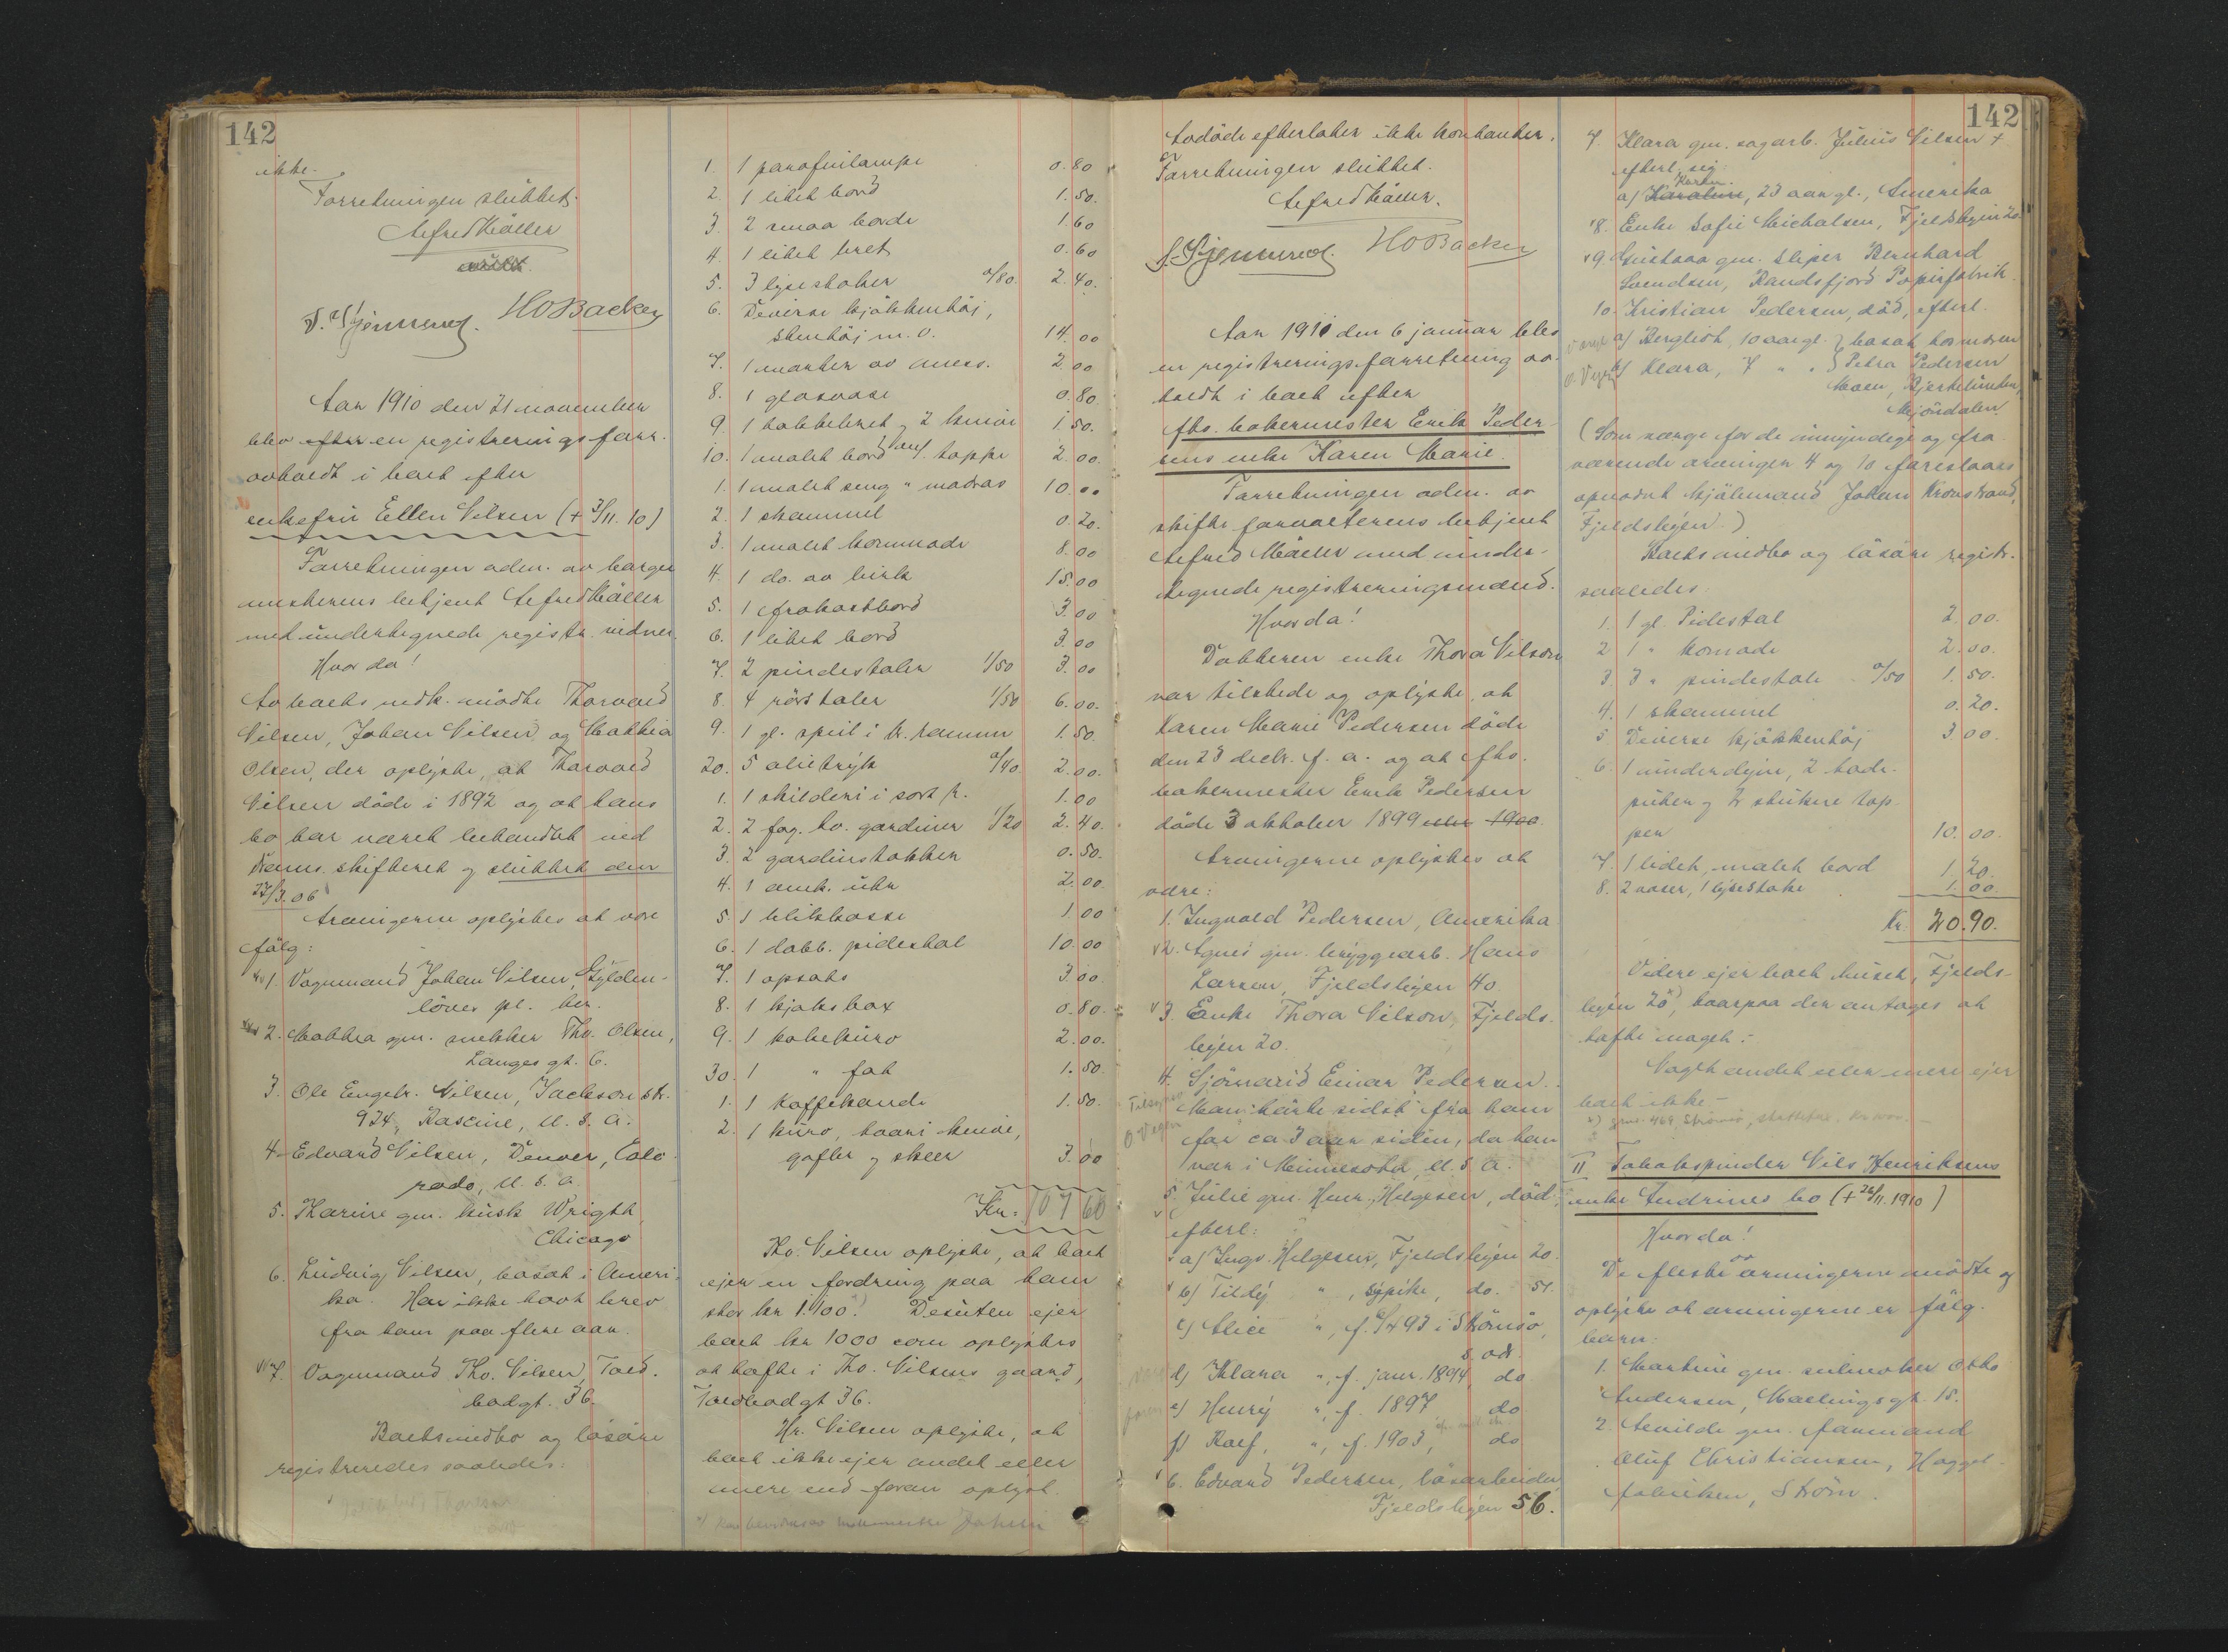 142
ikke.
Forretningen sluttet.
Alfred Møller
H O Backer
Aar 1910 den 21 november
blev efter en registreringsforr.
avholdt i boet efter
enkefru Ellen Nilsen (+ 3/11. 10)
Forretningen adm. av borger
mesterens betjent Alfred Møller
med undertegnede registr. vidner.
Hvor da!
Av boets vedk. mødte Thorvald
Nilsen, Johan Nilsen og Mathea
Olsen, der oplyste, at Thorvald
Nilsen døde i 1892 og at hans
bo har været behandlet ved
Drams. skifteret og sluttet den
27/3.06
Arvingerne oplystes at være
følg:
1. Vognmand Johan Nilsen, Gylden-
løves pl. her.
2. Mathea gm. snekker Thv. Olsen,
Langes gt. 6.
3. Ole Engebr. Nilsen, Jackson str.
924, Rascine, U. S. A.
4. Edvard Nilsen, Denver, Colo
rado, U. S. A.
5. Karine gm. kusk Wrigth
Chicago
6. Ludvig Nilsen, bosat i Ameri-
ka. Har ikke havt brev
fra ham paa flere aar.
7. Vognmand Thv. Nilsen, Told-
bodgt. 36.
Boets indbo og løsøre
registreredes saaledes:
1. 1 parafinlampe 0.80
2. 1 litet bord 1.50.
3. 2 smaa borde 1.60
4. 1 litet bret 0.60
5. 3 lysestaker a/80. 2.40.
6. Diverse kjøkkentøi,
stentøi m. v. 14.00
7. 1 morter av mess. 2.00
8. 1 glasvase 0.80
9. 1 hakkebret og 2 knive 1.50.
10. 1 malet bord m/ toppe 2.00.
1. 1 malet seng " madras 10.00
2. 1 skammel 0.20.
3. 1 malet kommode 8.00
4. 1 do. av birk 15.00
5. 1 frokostbord 3.00
6. 1 litet bord 3.00
7. 2 pindestoler 1/50 3.00
8. 4 rørstoler 1/50 6.00.
9. 1 gl. speil i br. ramme 1.50
20. 5 olietryk a/40 2.00.
1. 1 skilderi i sort r. 1.00
2. 2 fag. hv. gardiner 1/20 2.40.
3. 2 gardinstokker 0.50.
4. 1 amk. uhr 2.00.
5. 1 blikkasse 1.00
6. 1 dobb. pidestal 10.00
7. 1 opsats 3.00
8. 1 kjeksbox 0.80.
9. 1 kakekurv 2.00.
30. 1 " fat 1.50
1. 1 Kaffekande 1.50.
2. 1 kurv, hvori knive,
gafler og skeer 3.00
Kr. 107 60
Thv. Nilsen oplyste, at boet
ejer en fordring paa ham
stor kr 1.100. Desuten ejer
boet kr 1000 som oplystes
at hefte i Thv. Nilsens gaard,
Toldbodgt 36.
Hr. Nilsen oplyste, at
boet ikke ejer andet eller
mere end foran oplyst.
142
Avdøde efterlater ikke kontanter.
Forretningen sluttet.
Alfred Møller.
H O Backer
Aar 1911 den 6 januar blev
en registreringsforretning av-
holdt i boet efter
fhv. bakermester Erik Peder-
sens enke Karen Marie.
Forretningen adm. av
skifteforvalterens betjent
Alfred Møller med under-
tegnede registreringsmænd.
Hvor da!
Datteren enke Thora Nilson
var tilstede og oplyste, at
Karen Marie Pedersen døde
den 23 decbr. f. a. og at fhv.
bakermester Erik Pedersen
døde 3 oktober 1899 eller 1900.
Arvingerne oplystes at
være:
1. Ingvald Pedersen, Amerika
2. Agnes gm. bryggearb. Hans
Larsen, Fjeldsbyen 40.
3. Enke Thora Nilson, Fjelds-
byen 20.
4. Sjømand Einar Pedersen.
Man hørte sidst fra ham
for ca 3 aar siden, da han
var i Minnesota, U. S. A.
5. Julie gm. Henr. Helgesen, død,
efterl:
a) Ingv. Helgesen, Fjeldsbyen 20.
b) Tildy ", sypike, do. 51.
c) Alice ", f. 6/4 93 i Strømsø,
d) Klara ", f. janr. 1894, do
e) Henry ", f. 1897 do
f) Rolf, ", f. 1903, do
6. Edvard Pedersen, løsarbeider
Fjeldsbyen 56.
7. Klara gm. sagarb. Julius Nilsen +
efterl. sig:
a) Karoline, 23 aar gl., Amerika
8. Enke Sofie Michalsen, Fjeldsbyen 20.
9. Gustava gm. sliper Bernhard
Svendsen, Randsfjord Papirfabrik.
10. Kristian Pedersen, død, efterl.
a) Bergliot, 10 aar gl. } bosat hos moren
b) Klara, 7 " " } Petra Pedersen
Moen, Bjerkelunden,
Mjøndalen
(Som værge for de umyndige og fra-
værende arvinger 4 og 10 foreslaaes
opnævnt kjølmand Johan Kronstrand,
Fjeldsbyen.)
Boets indbo og løsøre registr.
saaledes:
1. 1 gl. Pidestal 2.00.
2 1 " komode 2.00.
3. 3 " pindestole a/50 1.50.
4. 1 skammel 0.20.
5 Diverse kjøkkentøi 3.00.
6. 1 underdyne, 2 hode-
puter og 2 stukne tep-
per 10.00.
7. 1 lidet, malet bord 1.20.
8. 2 vaser, 1 lysestake 1.00
Kr. 20.90.
Videre ejer boet huset, Fjelds-
byen 20 x), hvorpaa der antages at
hefte noget.
Noget andet eller mere ejer
boet ikke.
II Tobakspinder Nils Henriksens
enke Andrines bo (+ 26/11. 1910)
Hvor da!
De fleste av arvingerne mødte og
oplyste at arvingerne er følg.
børn:
1. Martine gm. seilmaker Otto
Andersen, Mællingsgt. 15.
2. Alvilde gm. formand
Oluf Christiansen, Haggel-
fabriken, Strøm.